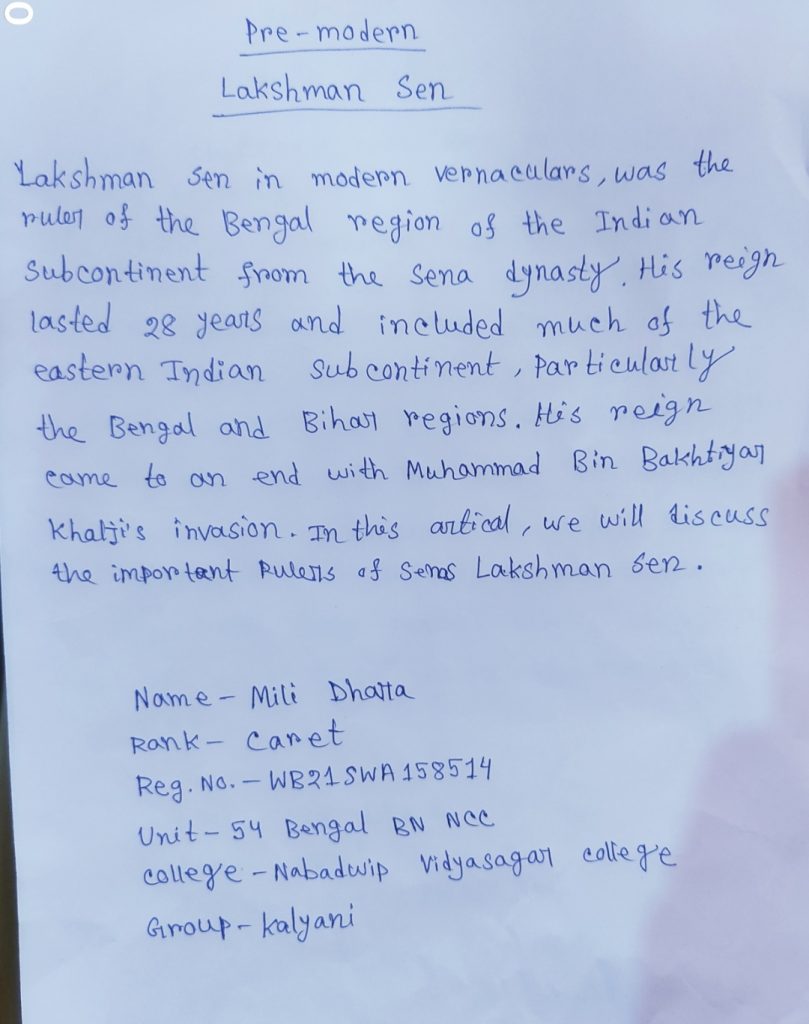 Pre-modern
Lakshman Sen
Lakshman Sen in modern vernaculars, was the
ruler of the Bengal region of the Indian
Subcontinent from the Sena dynasty. His reign
lasted 28 years and included much of the
eastern Indian subcontinent, particularly
the Bengal and Bihar regions. His reign
came to an end with Muhammad Bin Bakhtiyar
Khalji's invasion. In this artical, we will discuss
the important Rulers of Senas Lakshman Sen.
Name - Mili Dhara
Rank - Caret
Reg. No. - WB21SWA158514
Unit - 54 Bengal BN NCC
college - Nabadwip Vidyasagar college
Group - Kalyani